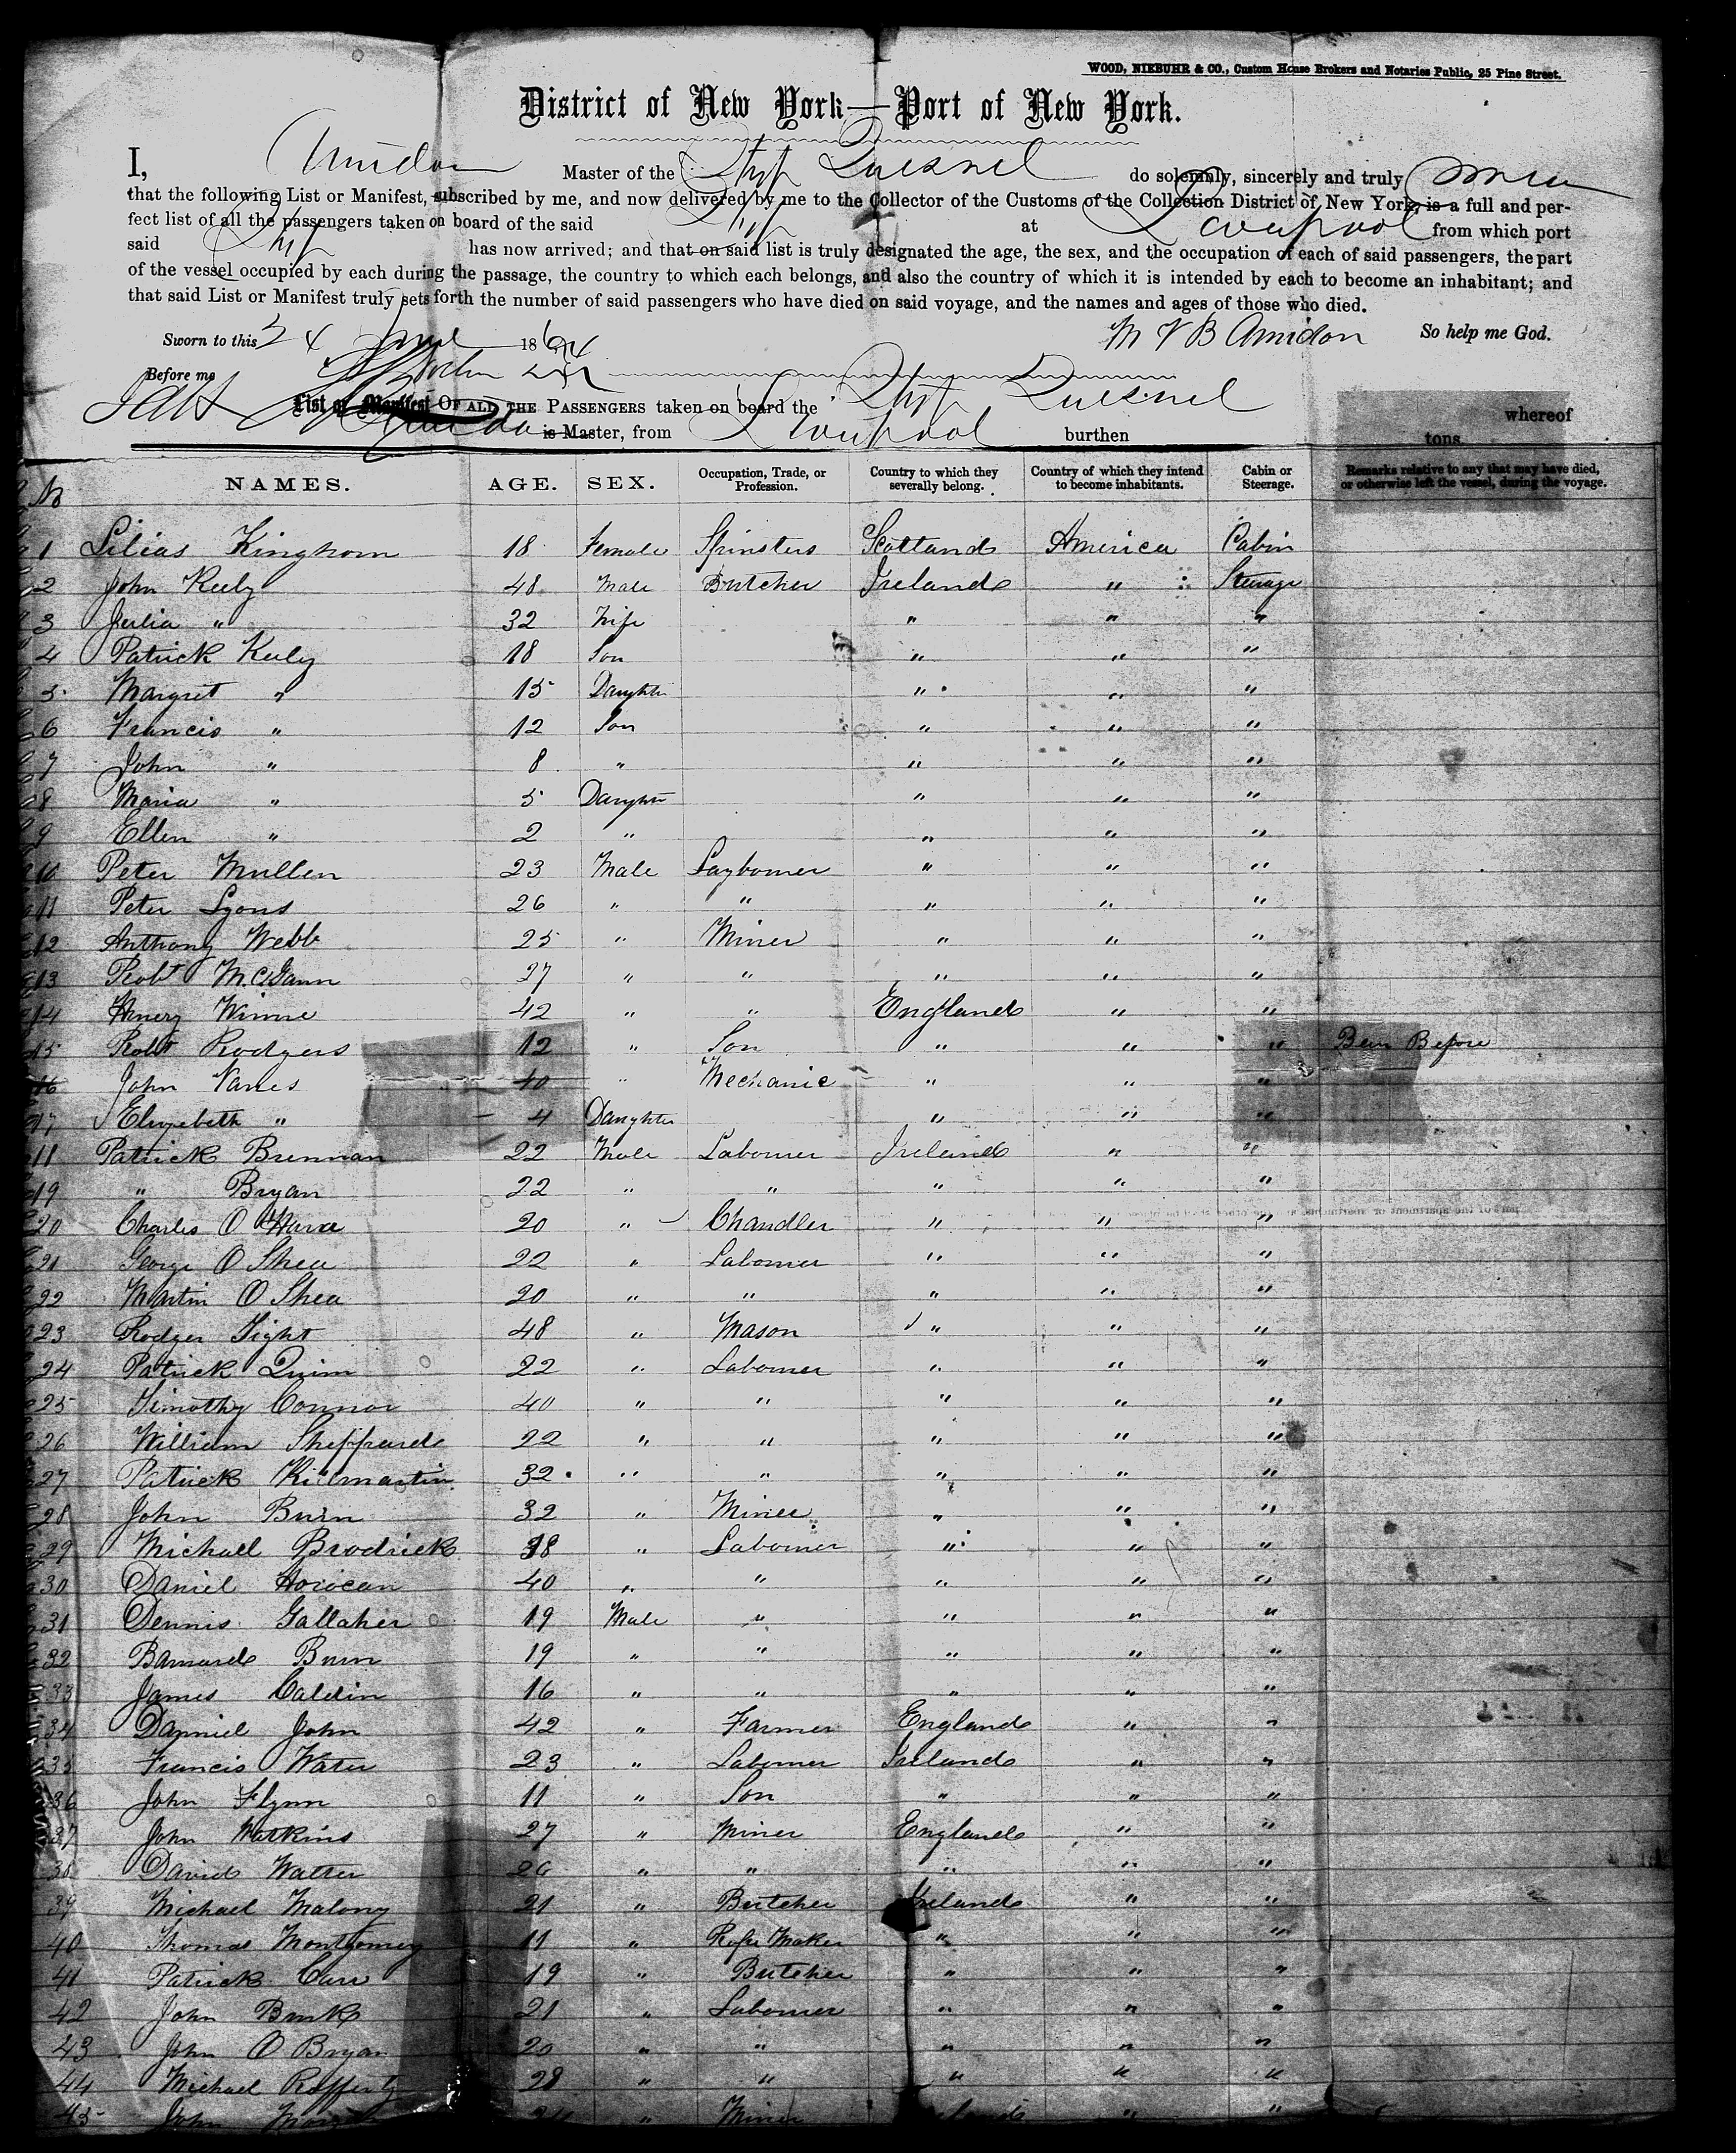 WOOD, NIEBUHR & CO., Custom House Brokers and Notaries Public, 25 Pine Street.
District of New York—Port of New York.
I, Amidon Master of the Ship Quesnel do solemnly, sincerely and truly swear
that the following List or Manifest, subscribed by me, and now delivered by me to the Collector of the Customs of the Collection District of New York, is a full and per-
fect list of all the passengers taken on board of the said Ship at Liverpool from which port
said Ship has now arrived; and that on said list is truly designated the age, the sex, and the occupation of each of said passengers, the part
of the vessel occupied by each during the passage, the country to which each belongs, and also the country of which it is intended by each to become an inhabitant; and
that said List or Manifest truly sets forth the number of said passengers who have died on said voyage, and the names and ages of those who died.
Sworn to this 24 June 1864 M V B Amidon So help me God.
Before me
List or Manifest OF ALL THE PASSENGERS taken on board the Ship Quesnel whereof
Amidon is Master, from Liverpool burthen tons
No NAMES. AGE. SEX. Occupation, Trade, or Profession. Country to which they severally belong. Country of which they intend to become inhabitants. Cabin or Steerage. Remarks relative to any that may have died, or otherwise left the vessel, during the voyage.
1 Lilias Kinghorn 18 Female Spinsters Scotland America Cabin
2 John Keely 48 Male Butcher Ireland " Steerage
3 Julia " 32 Wife " " "
4 Patrick Keely 18 Son " " "
5 Margret " 15 Daughter " " "
6 Francis " 12 Son " " "
7 John " 8 " " " "
8 Maria " 5 Daughter " " "
9 Ellen " 2 " " " "
10 Peter Mullen 23 Male Laybourer " " "
11 Peter Lyons 26 " " " " "
12 Anthony Webb 25 " Miner " " "
13 Robt McGann 27 " " " " "
14 Henery Winne 42 " " England " "
15 Robt Rodgers 12 " Son " " " Been Before
16 John Vanes 40 " Mechanic " " "
17 Elizebeth " 4 Daughter " " "
18 Patrick Brennan 22 Male Labourer Ireland " "
19 " Bryan 22 " " " " "
20 Charles O Hara 20 " Chandler " " "
21 George O Shea 22 " Labourer " " "
22 Martin O Shea 20 " " " " "
23 Rodger Tight 48 " Mason " " "
24 Patrick Quinn 22 " Labourer " " "
25 Timothy Connor 40 " " " " "
26 William Sheppard 22 " " " " "
27 Patrick Killmartin 32 " " " " "
28 John Burn 32 " Miner " " "
29 Michael Brodrick 38 " Labourer " " "
30 Daniel Horocan 40 " " " " "
31 Dennis Gallaher 19 Male " " " "
32 Barnard Burn 19 " " " " "
33 James Caldin 16 " " " " "
34 Danniel John 42 " Farmer England " "
35 Francis Water 23 " Labourer Ireland " "
36 John Flynn 11 " Son " " "
37 John Watkins 27 " Miner England " "
38 David Watter 26 " " " " "
39 Michael Malony 21 " Butcher Ireland " "
40 Thomas Montgomery 11 " Rope Maker " " "
41 Patrick Carr 19 " Butcher " " "
42 John Burk 21 " Labourer " " "
43 John O Bryan 20 " " " " "
44 Michael Rafferty 28 " " " " "
45 John " Miner " "